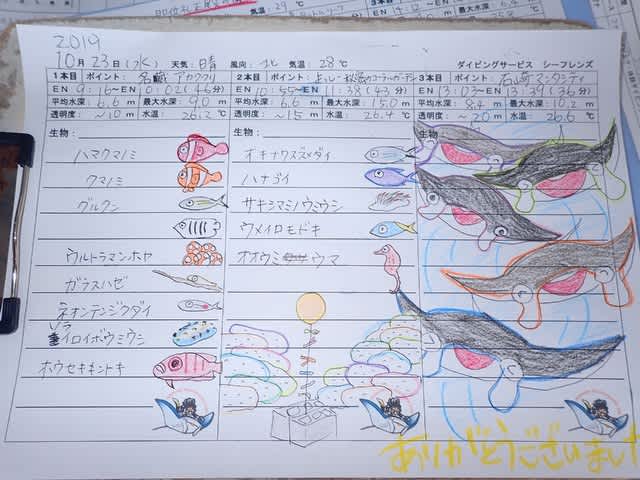 2019
10月23日(水) 天気:晴 風向:北 気温:28℃ ダイビングサービス シーフレンズ
1本目 ポイント: 名蔵 アカククリ
EN 9:16~EX 10:02 (46分)
平均水深: 6.6 m 最大水深: 9.0 m
透明度: ~10 m 水温: 26.2 ℃
生物:
ハマクマノミ
クマノミ
グルクン
ウルトラマンホヤ
ガラスハゼ
ネオンテンジクダイ
イロイボウミウシ
ホウセキキントキ
2本目 ポイント:
EN 10:55~EN 11:38 (43分)
平均水深: 6.6 m 最大水深: 15.0 m
透明度: ~15 m 水温: 26.4 ℃
生物:
オキナワスズメダイ
ハナゴイ
サキシマミノウミウシ
ウメイロモドキ
オオウミウマ
3本目 ポイント: 石崎マンタシティ
EN 13:03~EN 13:39 (36分)
平均水深: 8.4 m 最大水深: 10.2 m
透明度: ~20 m 水温: 26.6 ℃
生物
ありがとうございました